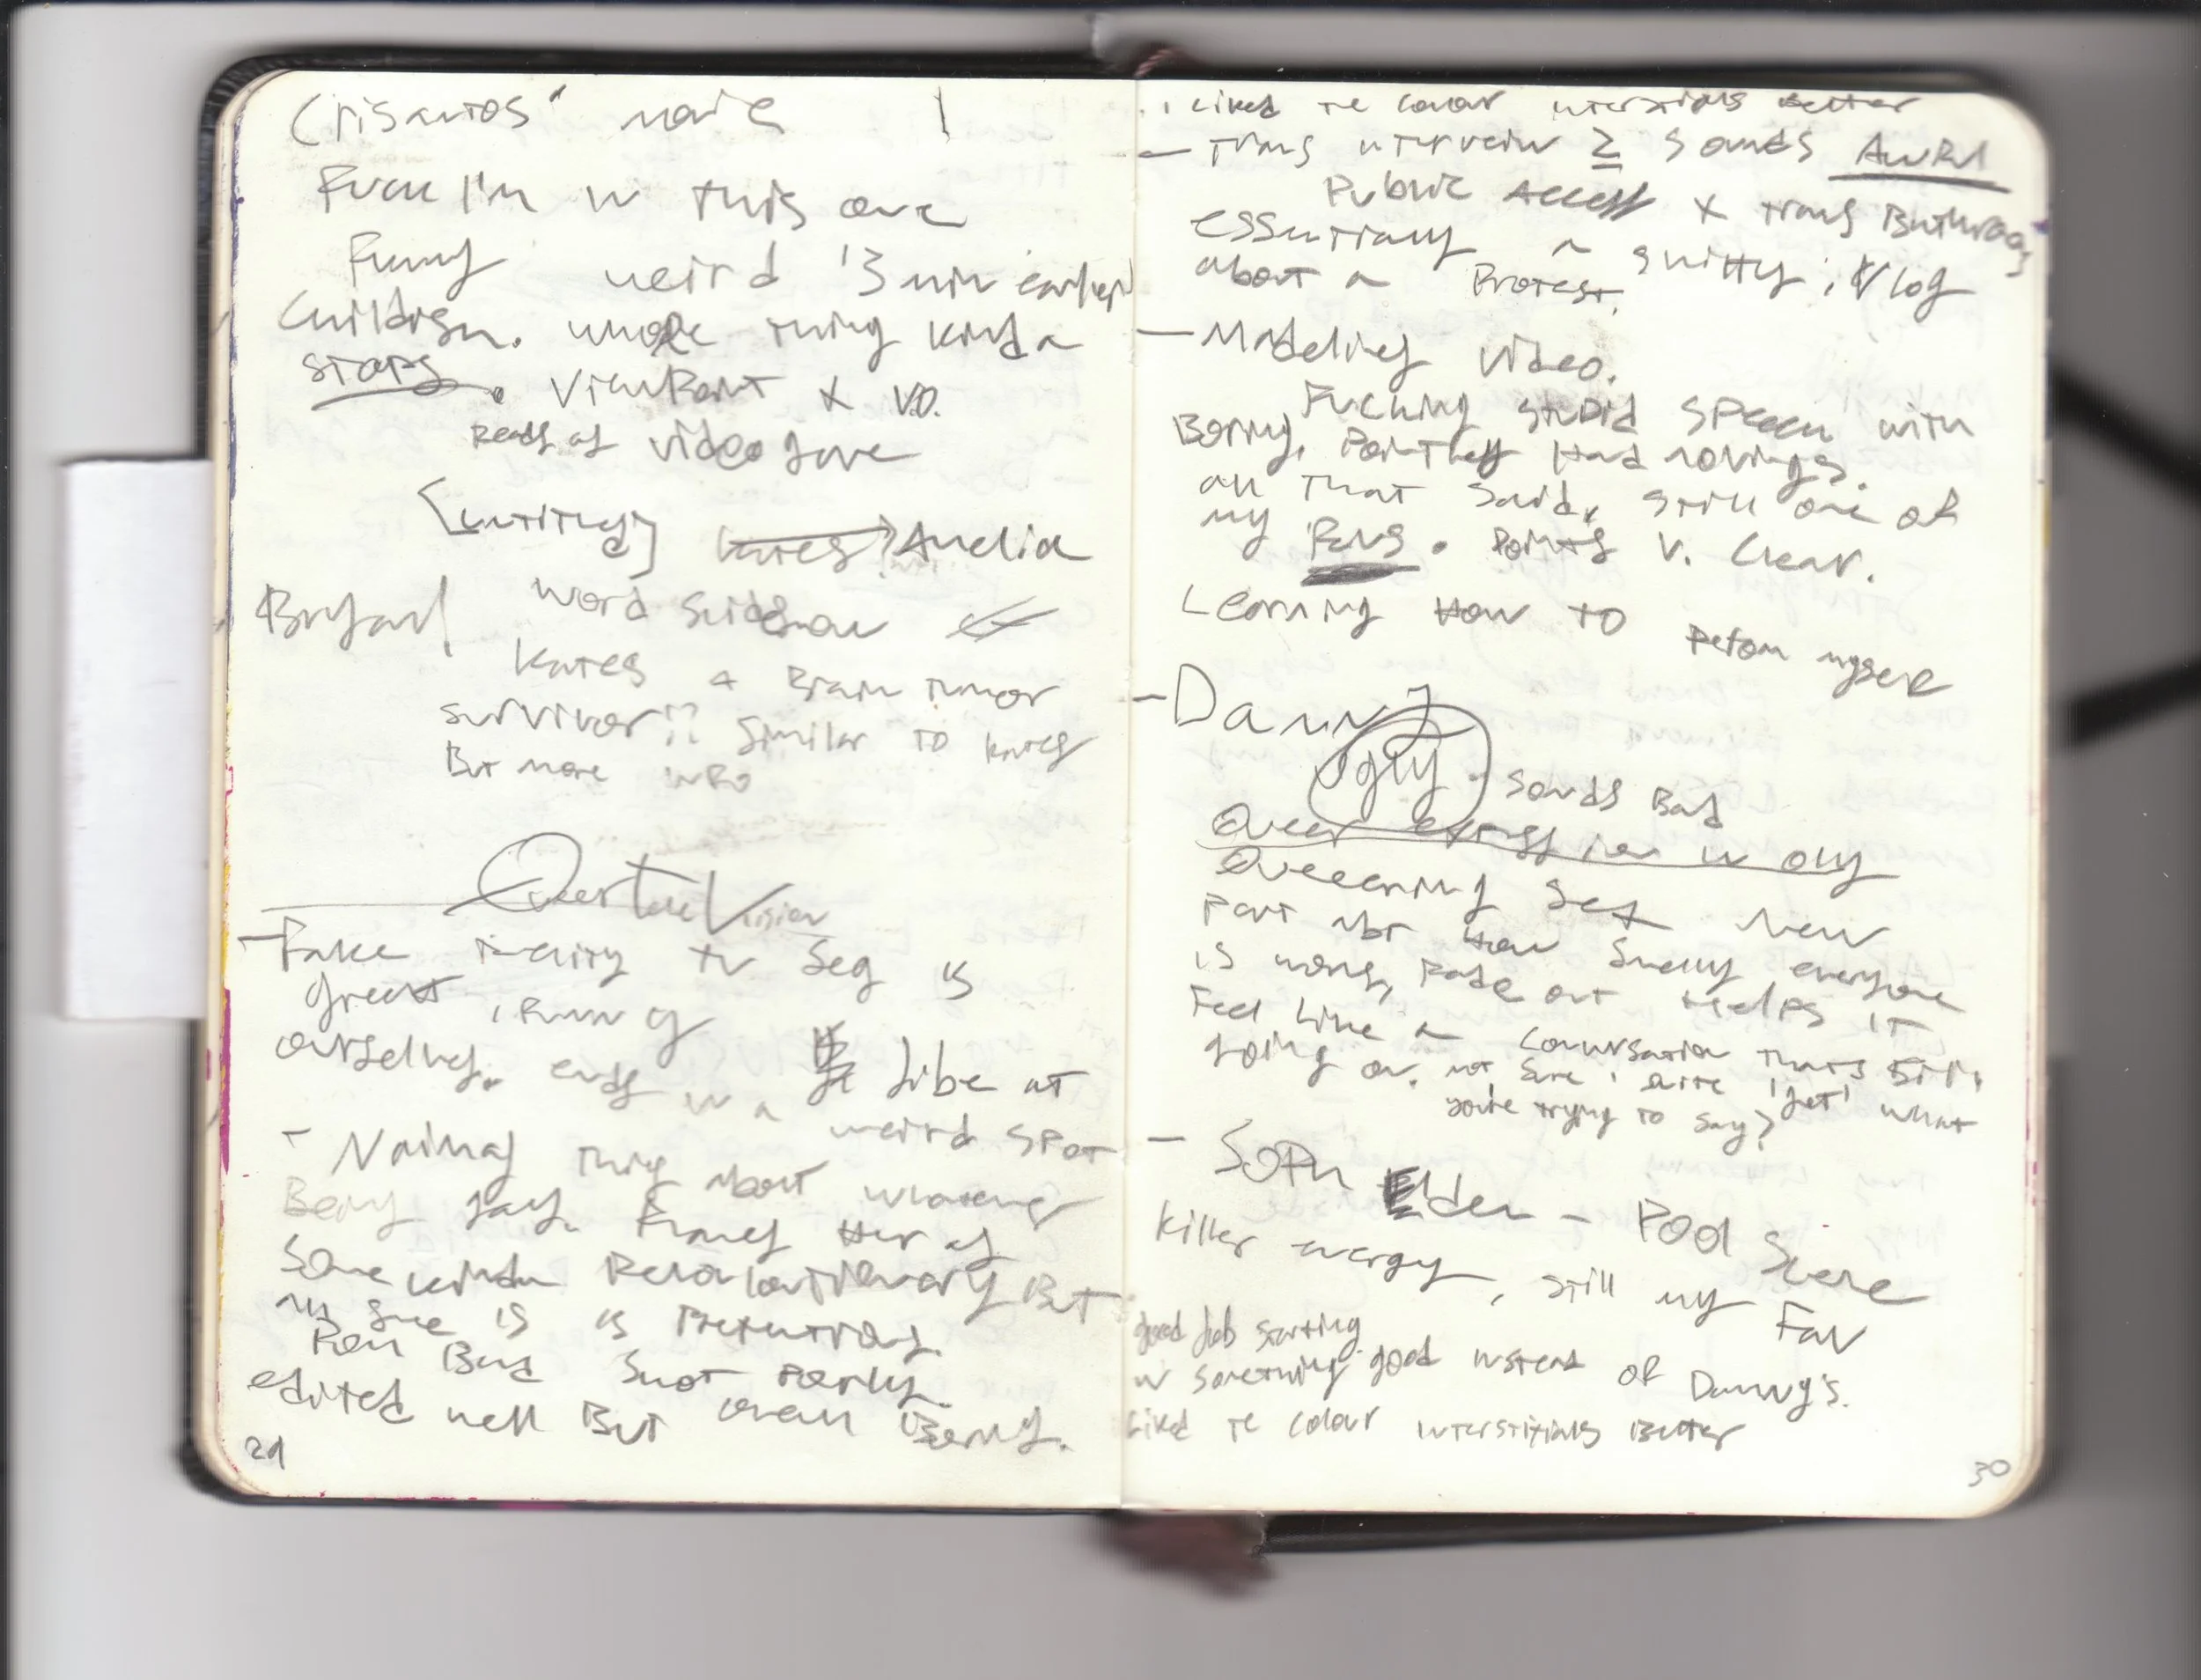 Crisantos' movie
Fuck I'm in this one
Funny weird '3 min earlier'
Childish. whole thing kinda
stops. ViewPoint X V.O.
Reads as video game
[writing] Kates? Amelia
Bryan! word slideshow
Kates a Brain tumor
survivor!? Similar to Kates
But more info
QueerTeleVision
- Fake reality tv seg is
great, funny
ourselves. ends in a vibe at
weird spot
- thing about whatever
Being gay. Frames Her as
Some kinda Revolutionary But
she is is Pretentious.
Bad Shot
edited well But overall Boring.
29
I Liked te colour interstitials Better
- Trans interview 2 Sounds Awful
Public Access X trans Bathrooms
essentially a shitty, Vlog
about a Protest.
- Modeling video.
Fucking stupid speech with
Boring, Pointless Hand movings.
all that said, still one of
my Favs. Points V. Clear.
Learning How to myself
- Danny
Ugly. Sounds Bad
Queer expression in only
Queering Sex New
Part abt How everyone
is wrong, Fade out Helps it
Feel Like a Conversation thats still
going on. not sure I quite 'get' what
you're trying to say?
- Soph Elden - Pool Scene
Killer energy, still my Fav
good Job starting
w something good instead of Danny's.
Liked te colour interstitials Better
30